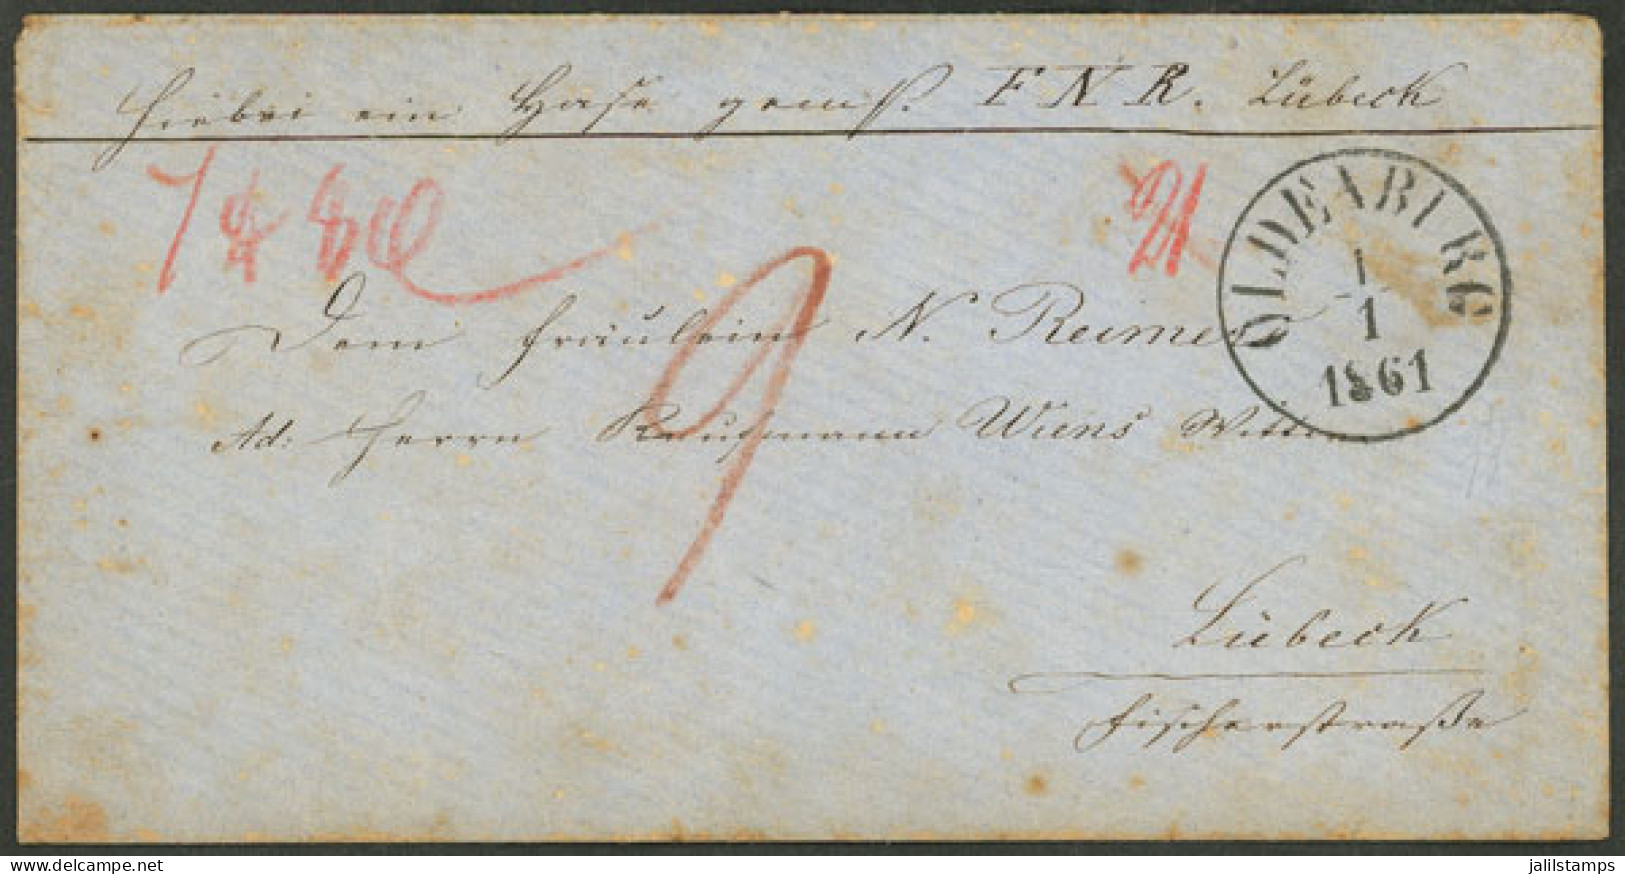 Hierbei ein Hase gemß. F N R. Lübeck
21
OLDENBURG
1
1
1861
9
Dem Fräulein N. Reimers
Ad: Herrn Kaufmann Wiens Wittwe
Lübeck
Fischerstraße
delcampe.net
jalilstamps